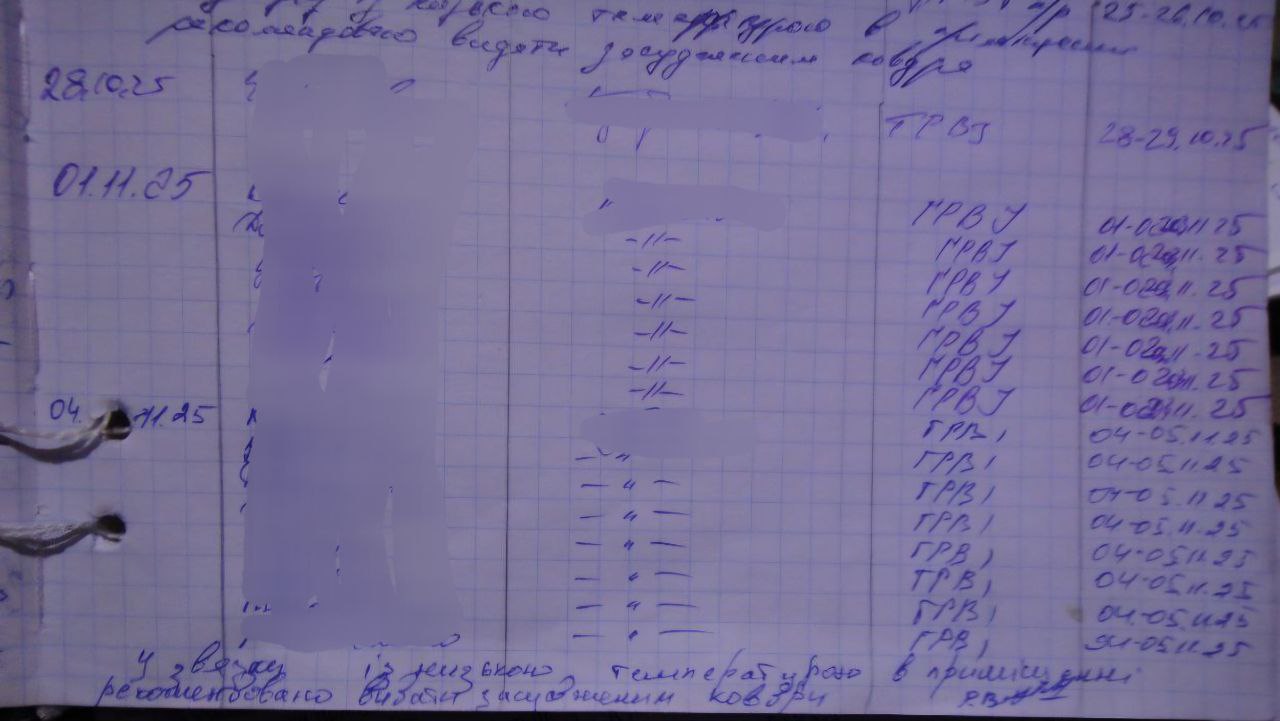 низькою температурою в приміщенні 25-26.10.25
рекомендовано видати засудженим ковдри
28.10.25
ГРВІ 28-29.10.25
01.11.25
ГРВІ 01-02.11.25
-11- ГРВІ 01-02.11.25
-11- ГРВІ 01-02.11.25
-11- ГРВІ 01-02.11.25
-11- ГРВІ 01-02.11.25
-11- ГРВІ 01-02.11.25
-11- ГРВІ 01-02.11.25
04.11.25 ГРВІ 04-05.11.25
— " ГРВІ 04-05.11.25
— " — ГРВІ 04-05.11.25
— " — ГРВІ 04-05.11.25
— " — ГРВІ 04-05.11.25
— " — ГРВІ 04-05.11.25
— " — ГРВІ 04-05.11.25
— " — ГРВІ 04-05.11.25
У звязку із низькою температурою в приміщенні
рекомендовано видати засудженим ковдри